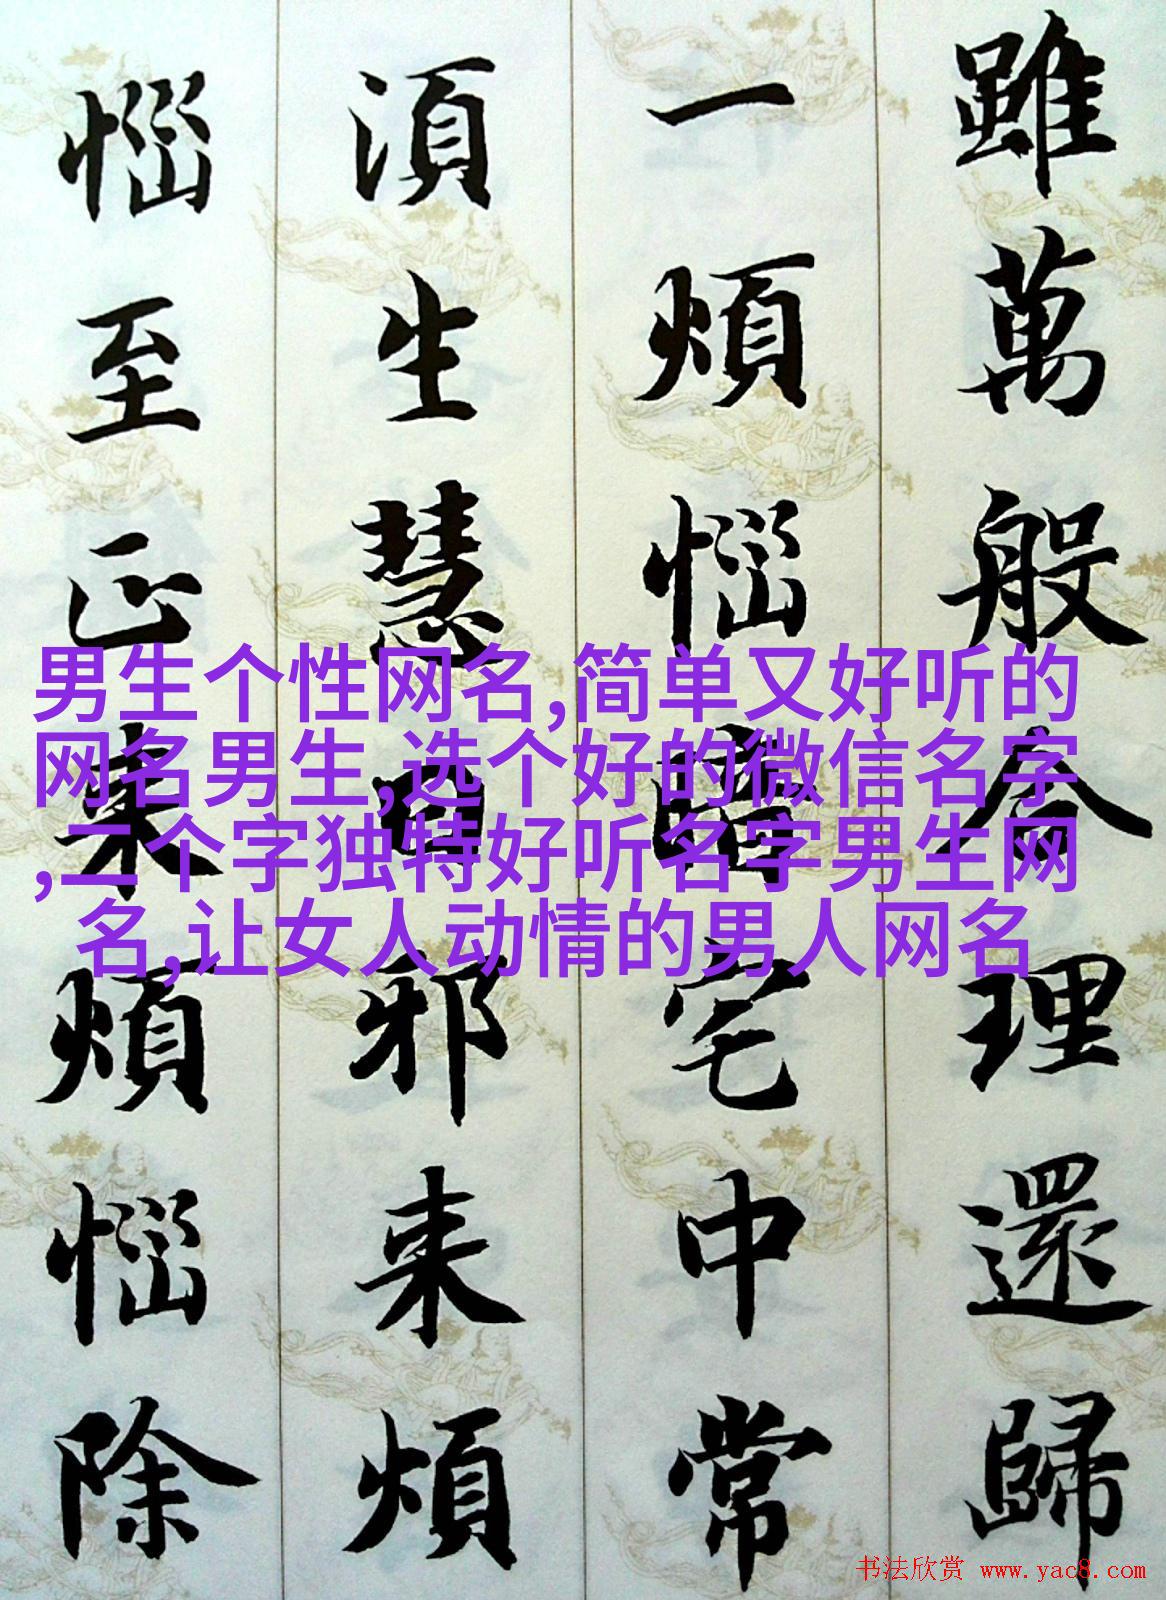 雖萬般合理還歸
一煩惱暗宅中常
湏生慧日邪来煩
惱至正来煩惱除
男生个性网名,简单又好听的
网名男生,选个好的微信名字
,二个字独特好听名字男生网
名,让女人动情的男人网名
书法欣赏 www.yac8.com